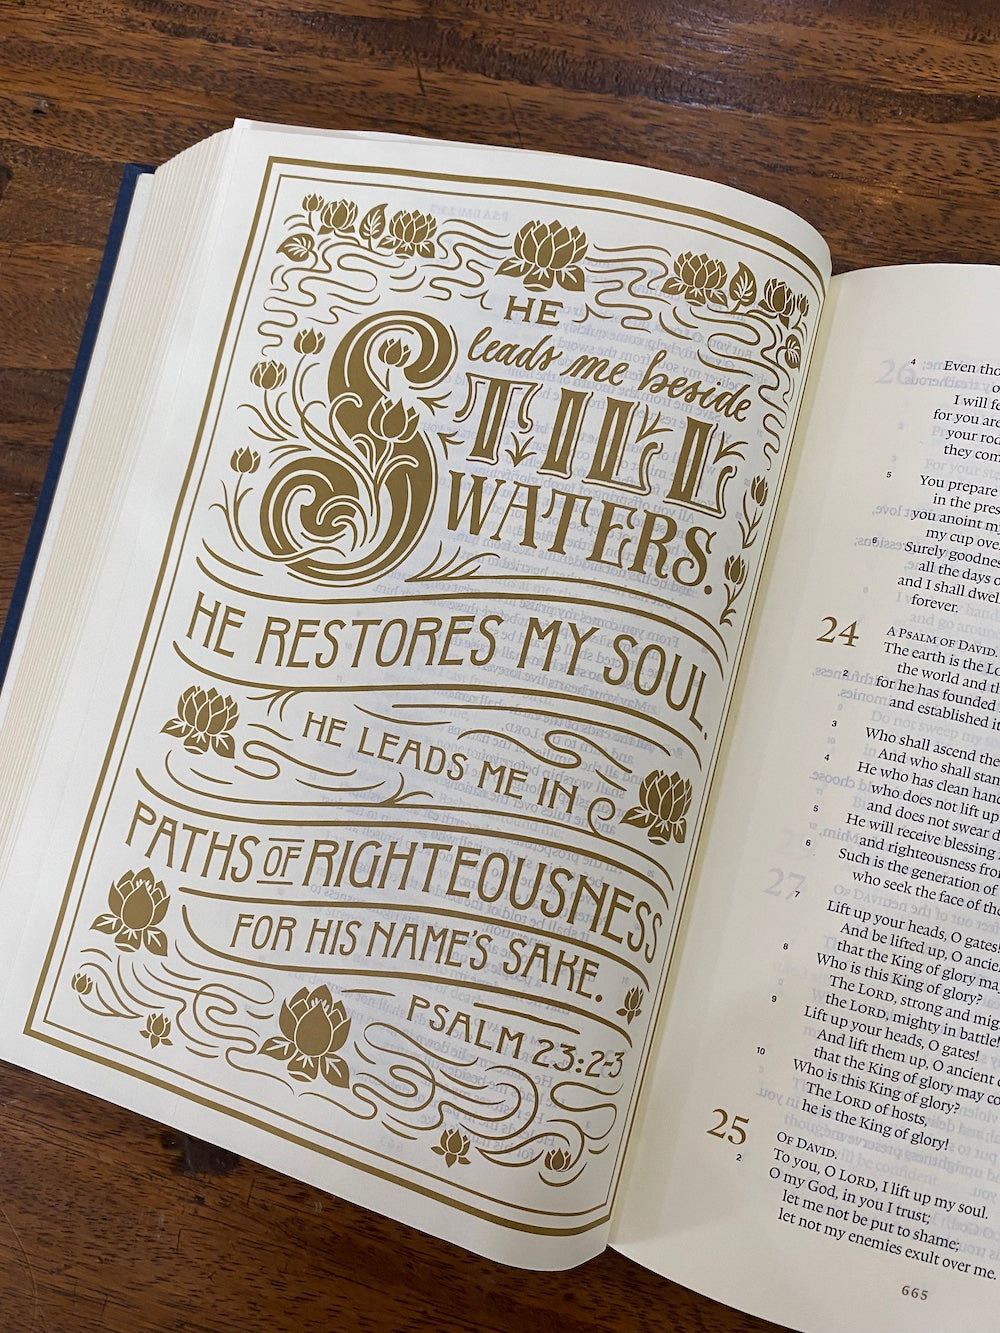 HE
leads me beside
STILL
WATERS.
HE RESTORES MY SOUL.
HE LEADS ME IN
PATHS OF RIGHTEOUSNESS
FOR HIS NAME'S SAKE.
PSALM 23:2-3
4 Even
I will
for you are
your
they
5 You prepare
in the
you anoint my
my cup
6 Surely
all the days
and I shall
forever.
24 A PSALM OF DAVID.
The earth is the
2 the world and
for he has founded
and established
3 Who shall ascend the
And who shall
4 He who has clean
who does not lift up
and does not swear
5 He will receive blessing
and righteousness
6 Such is the generation of
who seek the face of
7 Lift up your heads, O gates!
And be lifted up, O
8 that the King of glory may
Who is this King of glory?
The LORD, strong and
9 the LORD, mighty in battle!
Lift up your heads, O gates!
And lift them up, O ancient
10 that the King of glory may
Who is this King of glory?
The LORD of hosts,
he is the King of glory!
25 OF DAVID.
2 To you, O LORD, I lift up my soul.
O my God, in you I trust;
let me not be put to shame;
let not my enemies exult over me.
665